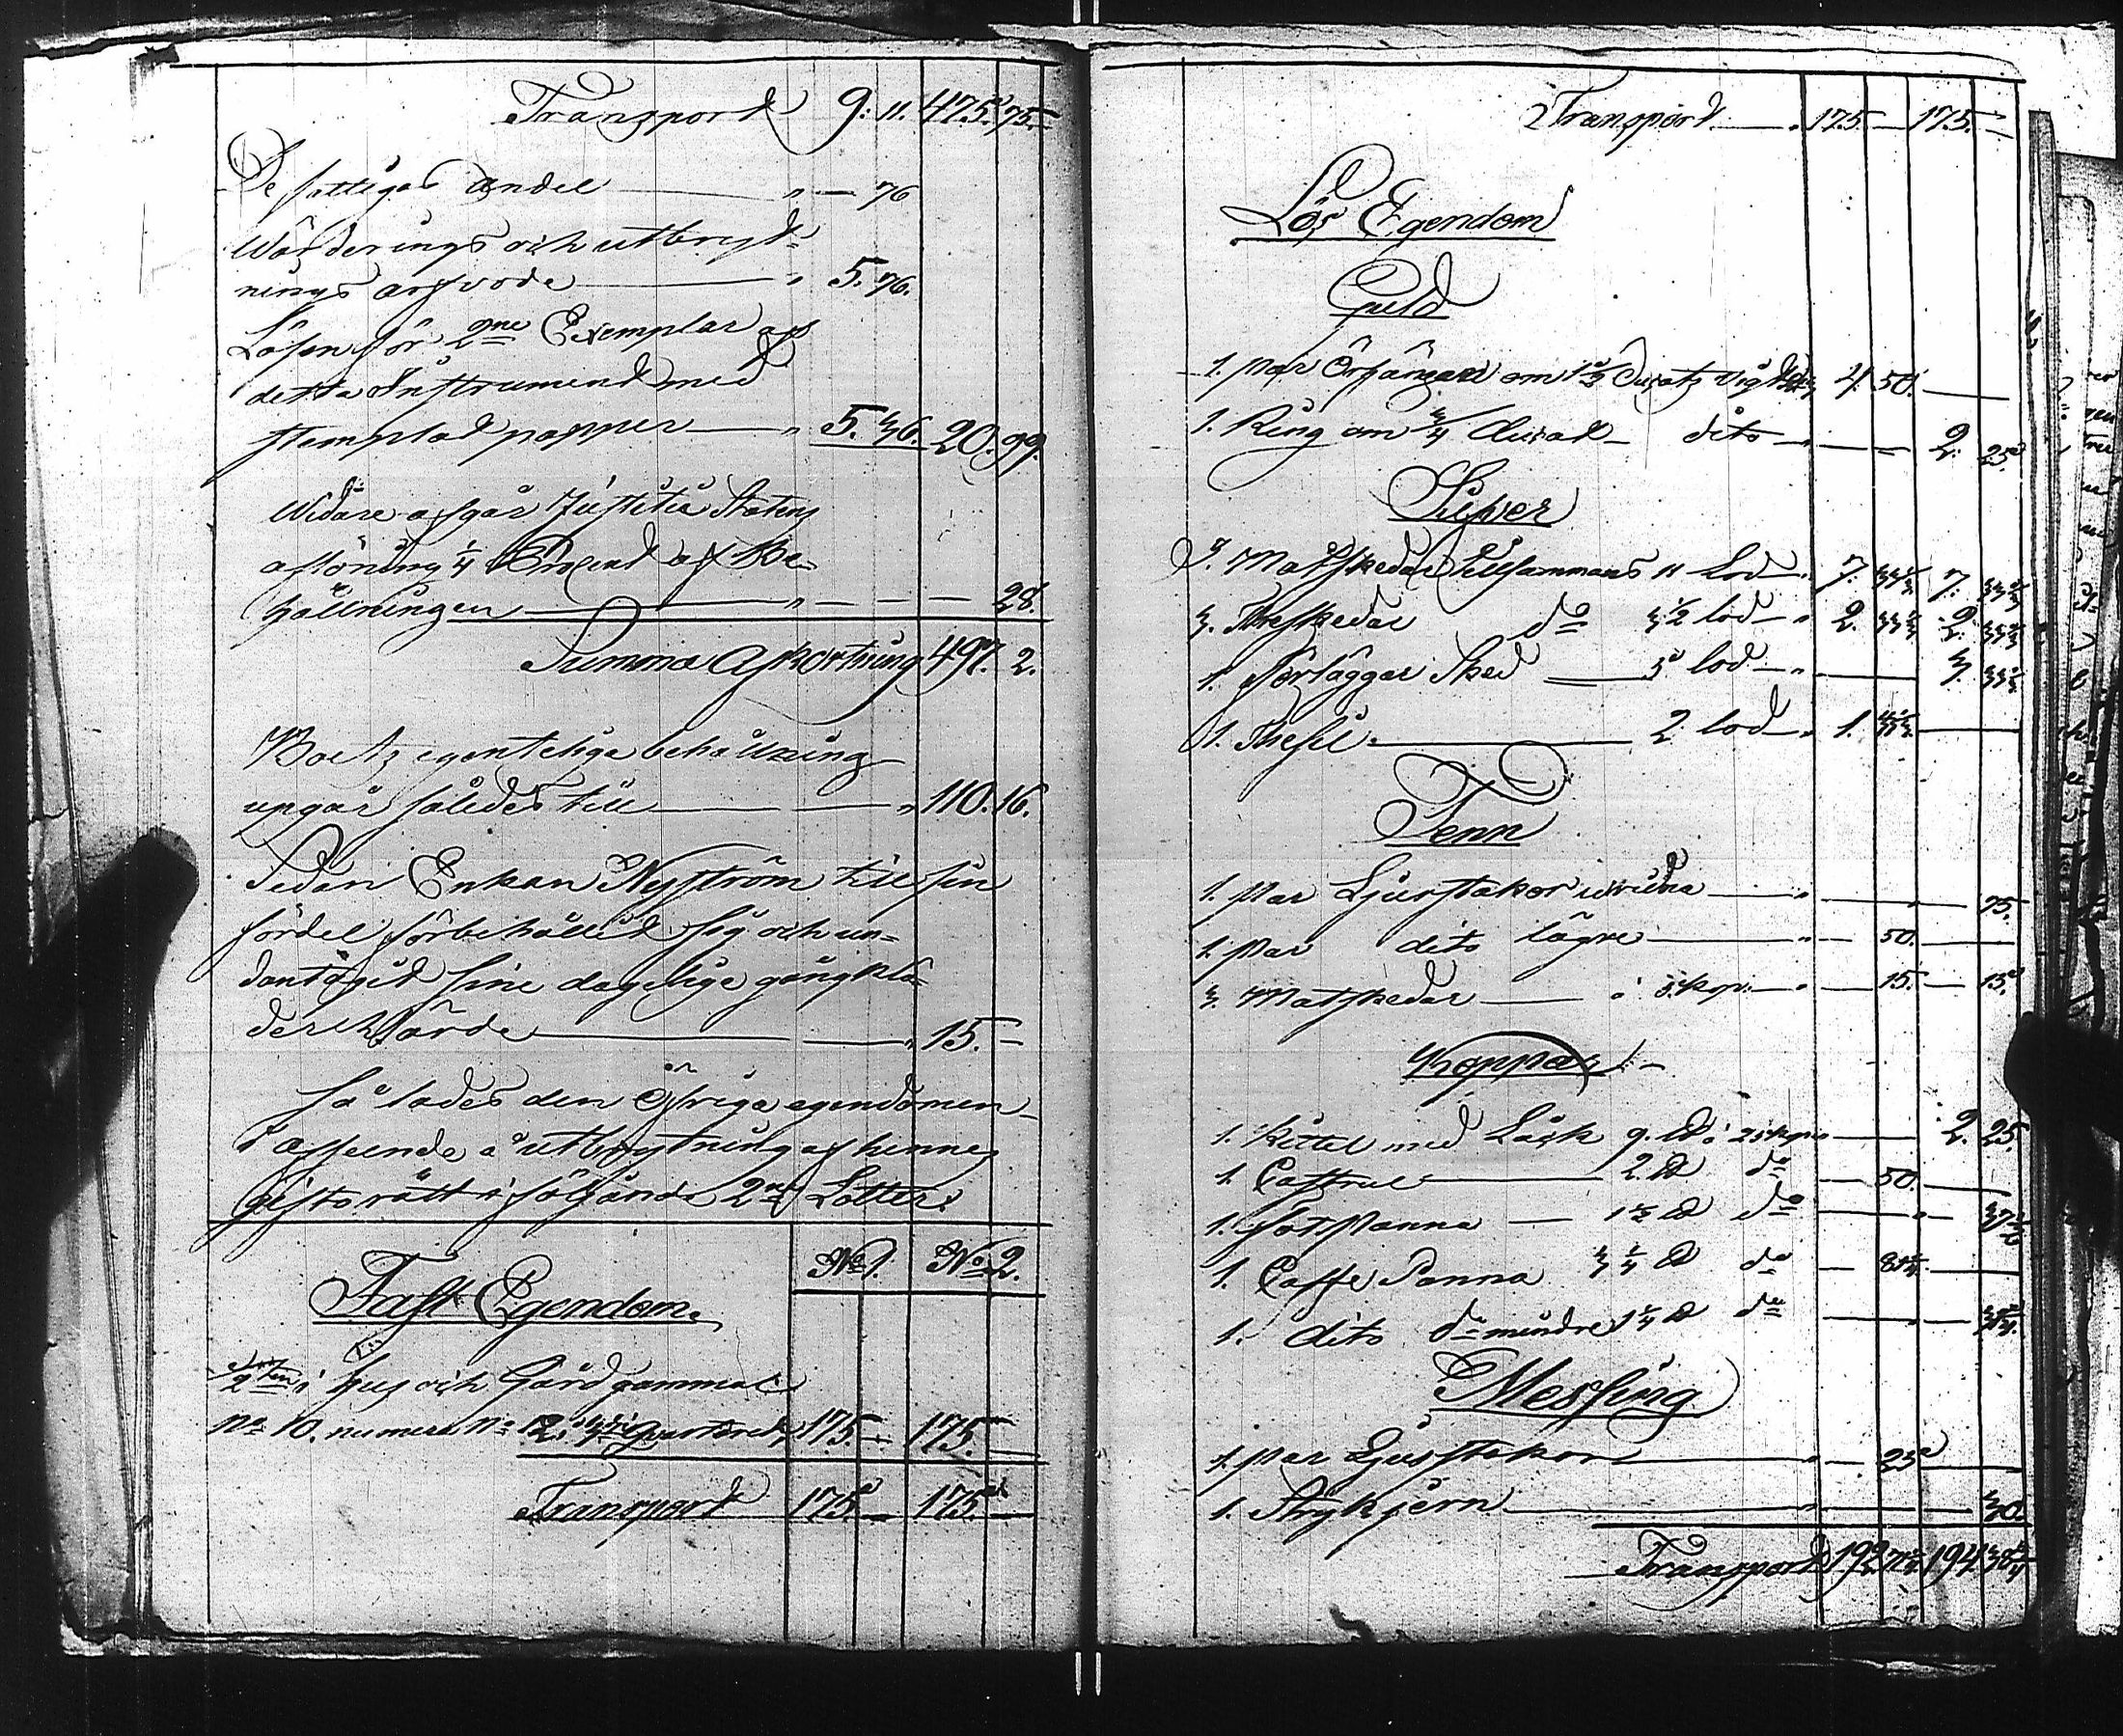 Transport 9: 11. 475. 75.
De fattigas andel — " — 76
Wärderings och utbryt-
nings arfvode — " 5. 76.
Lösen för 2ne Exemplar af
detta Instrument med
stemplad papper — " 5. 36. 20. 99.
Widare afgår Justitiæ Statens
aflöning 1/4 Procent af Be-
hållningen — " — — — 28.
Summa Afkortning 497. 2.
Boetz egenteliga behållning
upgår således till — — " 110. 16.
Sedan Enkan Nyström till sin
fördel förbehållit sig och un-
dantagit sine dagelige gångklä-
der värde — — " 15. —
så lades den öfriga egendomen
afseende å utbrytning af hennes
giftorätt i följande 2ne Lotter.
No 1. No 2.
Fast Egendom.
i Hus och Gård gammal
No 10. numera No 12. i 3die qvarteret 175. — 175. —
Transport 175. — 175. —
Transport — " 175. — 175. —
Lös Egendom
Guld
1. Par Örhängen om 1 1/2 Ducatz vigt 4. 50. —
1. Ring om 3/4 Ducat — dito — " — — 2. 25
Silfver
Matskedar tillsammans 11 Lod — " 7. 33 1/3 7. 33 1/3
3. Theskedar do 3 1/2 lod — " 2. 33 1/3 2. 33 1/3
1. Förläggar Sked — 5 lod — " — 3. 33 1/3
1. Thesil — 2 lod — " 1. —
Tenn
1. Par Ljusstakar — " — — 75.
1. Par dito lägre — " — 50. —
3. Matskedar — à 5 kop. — " — 15. — 15
Koppar
1. Kittel med Låck 9. ℔ à 25 kop. — 2. 25.
1. Castrull — 2. ℔ do — 50. —
1. Panna — 1 1/2 ℔ do — " — 37 1/2
1. Caffe Panna 3 1/4 ℔ do — 81 1/4. —
1. dito do mindre 1 1/4 ℔ do — — 31 1/4.
Messing
1. Par Ljusstakar — " — 25 —
1. Strykjern — " — — 30.
Transport 192. 194. 38